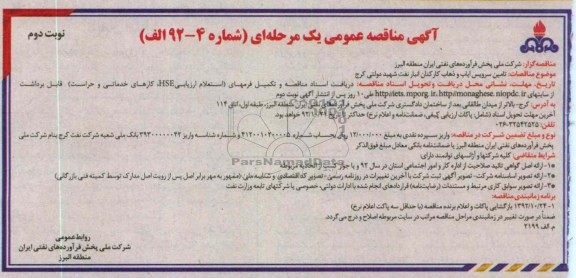 آگهی مناقصه عمومی یک مرحله‌ای (شماره ۴-۹۲ الف)
نوبت دوم
مناقصه‌گزار: شرکت ملی پخش فرآورده‌های نفتی ایران منطقه البرز
موضوع مناقصات: تامین سرویس ایاب و ذهاب کارکنان انبار نفت شهید دولتی کرج
تاریخ، مهلت، نشانی محل دریافت و تحویل اسناد مناقصه: دریافت اسناد مناقصه و تکمیل فرمهای (استعلام ارزیابی HSE، کارهای خدماتی و حراست) قابل برداشت
از سایتهای http:iets.mporg.ir, http:monaghese.niopdc.ir طی ۱۰ روز پس از انتشار آگهی نوبت دوم
به آدرس: کرج- بالاتر از میدان طالقانی بعد از ساختمان دادگستری شرکت ملی پخش فرآورده‌های نفتی منطقه البرز، طبقه اول، اتاق ۱۱۴
آخرین مهلت تحویل اسناد (شامل پاکات ارزیابی کیفی، ضمانتنامه و اعلام نرخ) حداکثر
نوع و مبلغ تضمین شرکت در مناقصه: واریز سپرده نقدی به مبلغ ۱۲/۰۰۰/۰۰۰ ریال بحساب شماره و شناسه واریز بانک ملی شعبه شرکت نفت کرج بنام شرکت ملی
پخش فرآورده‌های نفتی ایران منطقه البرز یا ضمانتنامه بانکی معادل مبلغ فوق‌الذکر
شرایط متقاضی: کلیه شرکتها و ارگانهای تواتمند دارای:
۱- ارائه اصل گواهی تائید صلاحیت از اداره کار و امور اجتماعی استان در سال ۹۲ و یا جواز
۲- ارائه تصویر اساسنامه شرکت- تصویر آگهی ثبت شرکت با آخرین تغییرات در روزنامه رسمی- تصویر کد اقتصادی و شناسه ملی (ممهور به مهر برابر اصل پس از رویت اصل مدارک توسط کمیته فنی بازرگانی)
۳- ارائه تصویر سوابق کاری مرتبط و مستندات (رضایتنامه) قراردادهای انجام شده با ادارات دولتی، خصوصی یا شرکتهای تابعه وزارت نفت
برنامه زمانبندی مناقصه:
۱- ۱۳۹۲/۱۰/۲۳ بازگشایی پاکات و اعلام برنده مناقصه (با حداقل سه پاکت اعلام نرخ)
ضمناً در صورت تغییر در زمانبندی مراحل مناقصه مراتب در سایت مربوطه اصلاح و درج می‌گردد.
م.الف ۲۱۹۹
روابط عمومی
شرکت ملی پخش فرآورده‌های نفتی ایران
منطقه البرز
ParsNamadData